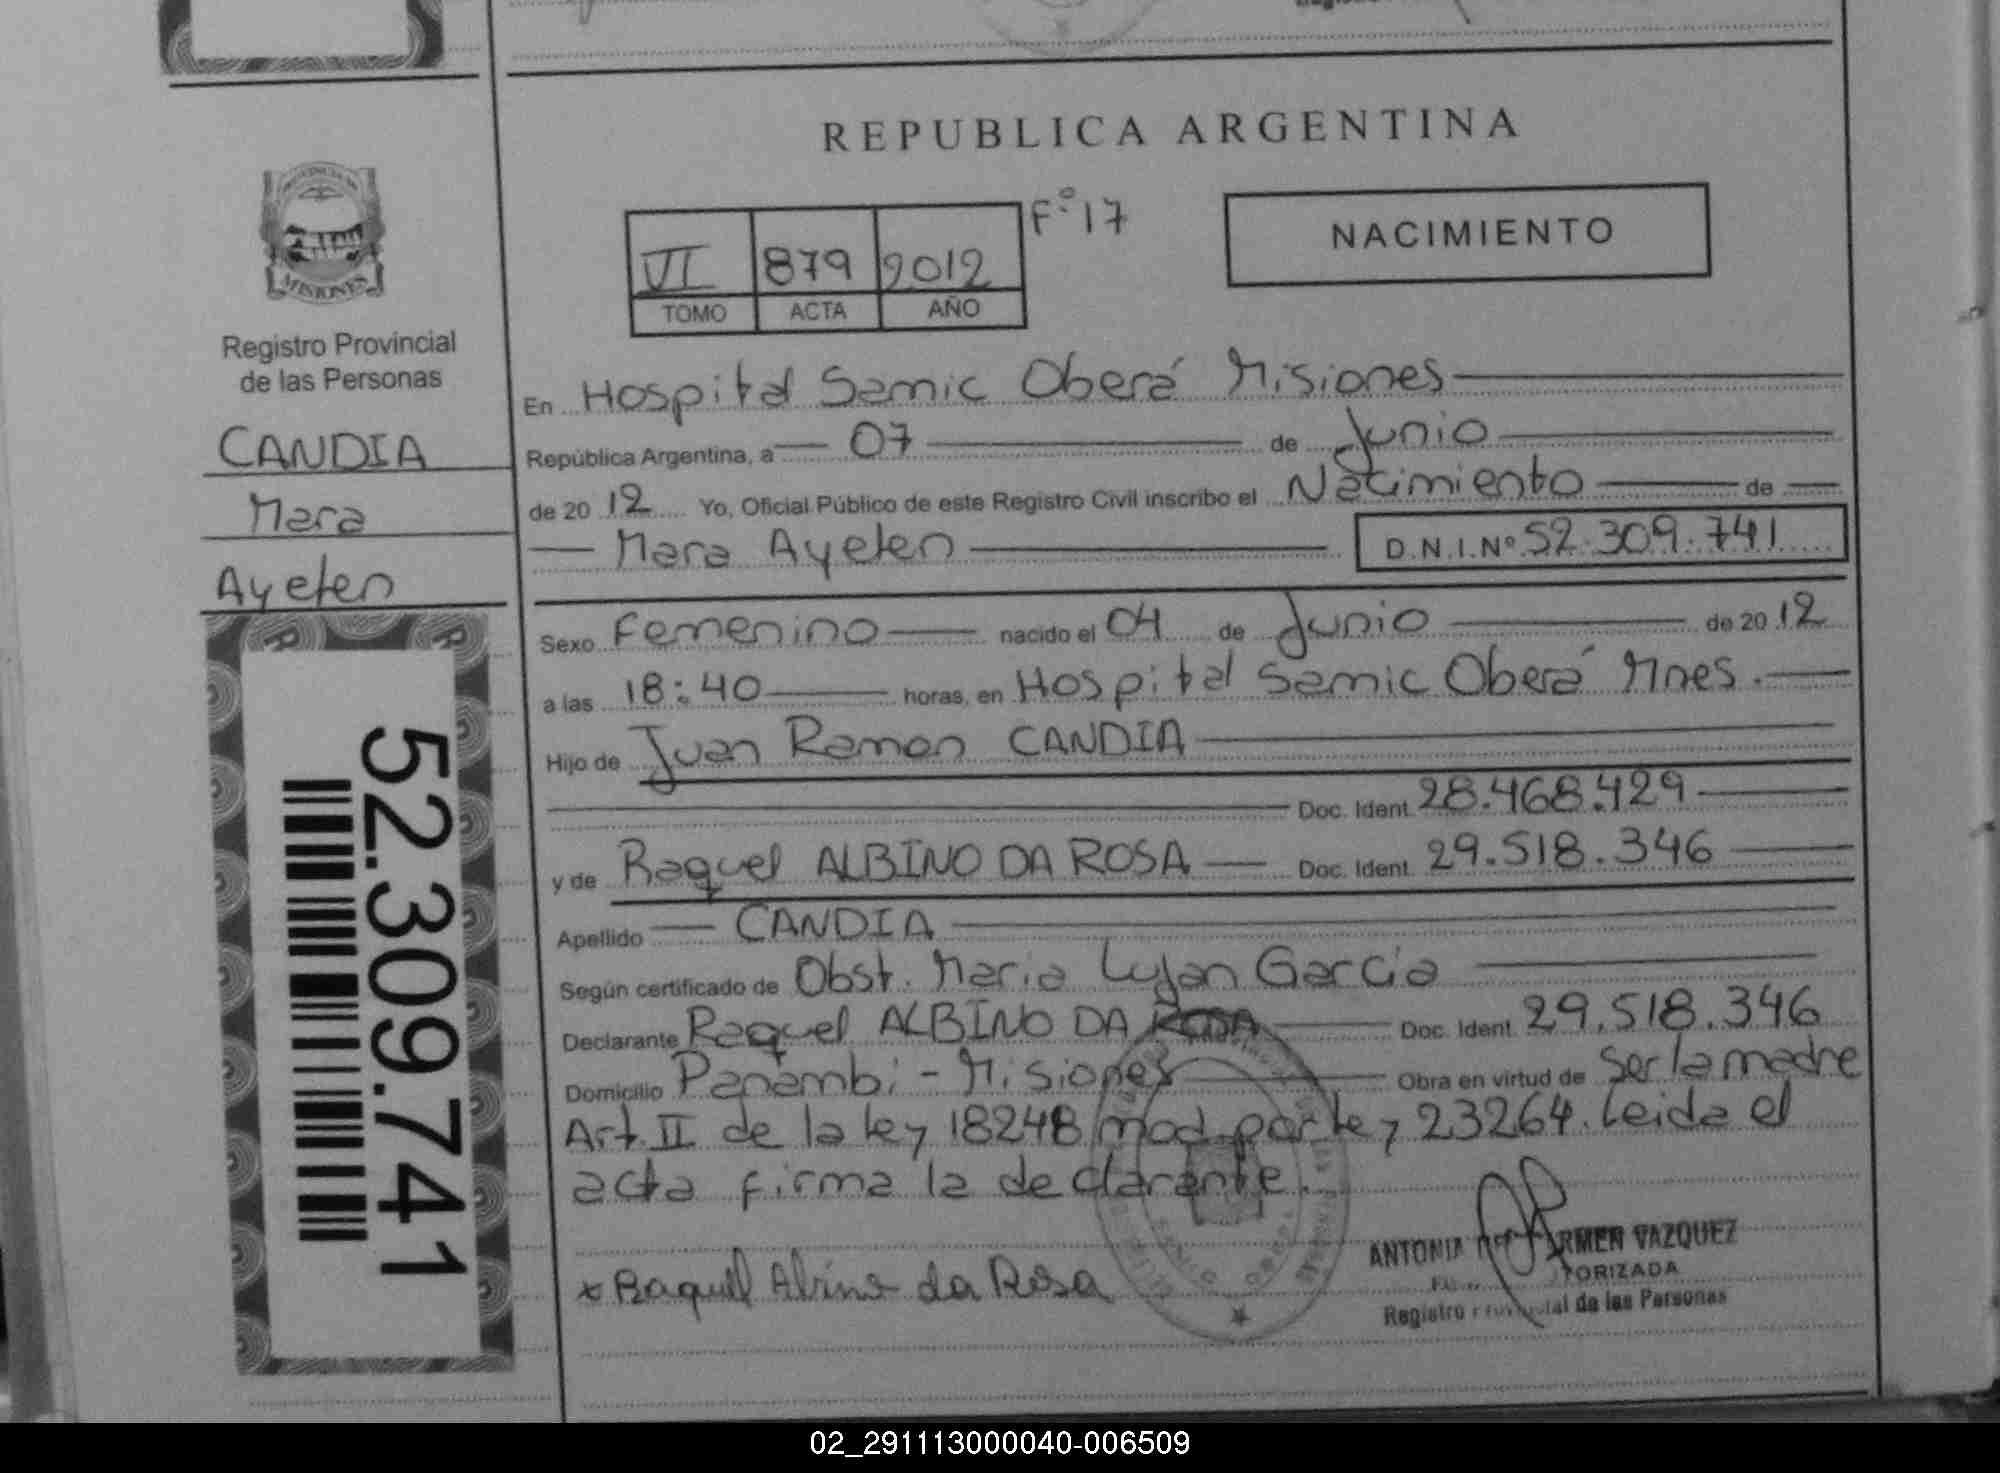 REPUBLICA ARGENTINA
F° 17
VI 879 2012
TOMO ACTA AÑO
NACIMIENTO
MISIONES
Registro Provincial
de las Personas
CANDIA
Mara
Ayelen
52.309.741
En Hospital Samic Oberá Misiones
República Argentina, a 07 de Junio
de 20 12 Yo, Oficial Público de este Registro Civil inscribo el Nacimiento de
Mara Ayelen D.N.I.Nº 52.309.741
Sexo Femenino nacido el 04 de Junio de 20 12
a las 18:40 horas, en Hospital Samic Oberá Mnes.
Hijo de Juan Ramon CANDIA
Doc. Ident. 28.468.429
y de Raquel ALBINO DA ROSA Doc. Ident. 29.518.346
Apellido CANDIA
Según certificado de Obst. Maria Lujan Garcia
Declarante Raquel ALBINO DA ROSA Doc. Ident. 29.518.346
Domicilio Panambi - Misiones Obra en virtud de ser la madre
Art. II de la ley 18248 mod. por ley 23264. Leida el
acta firma la declarante.
x Raquel Albino da Rosa
ANTONIA ARMEN VAZQUEZ
TORIZADA
Registro de las Personas
02_291113000040-006509